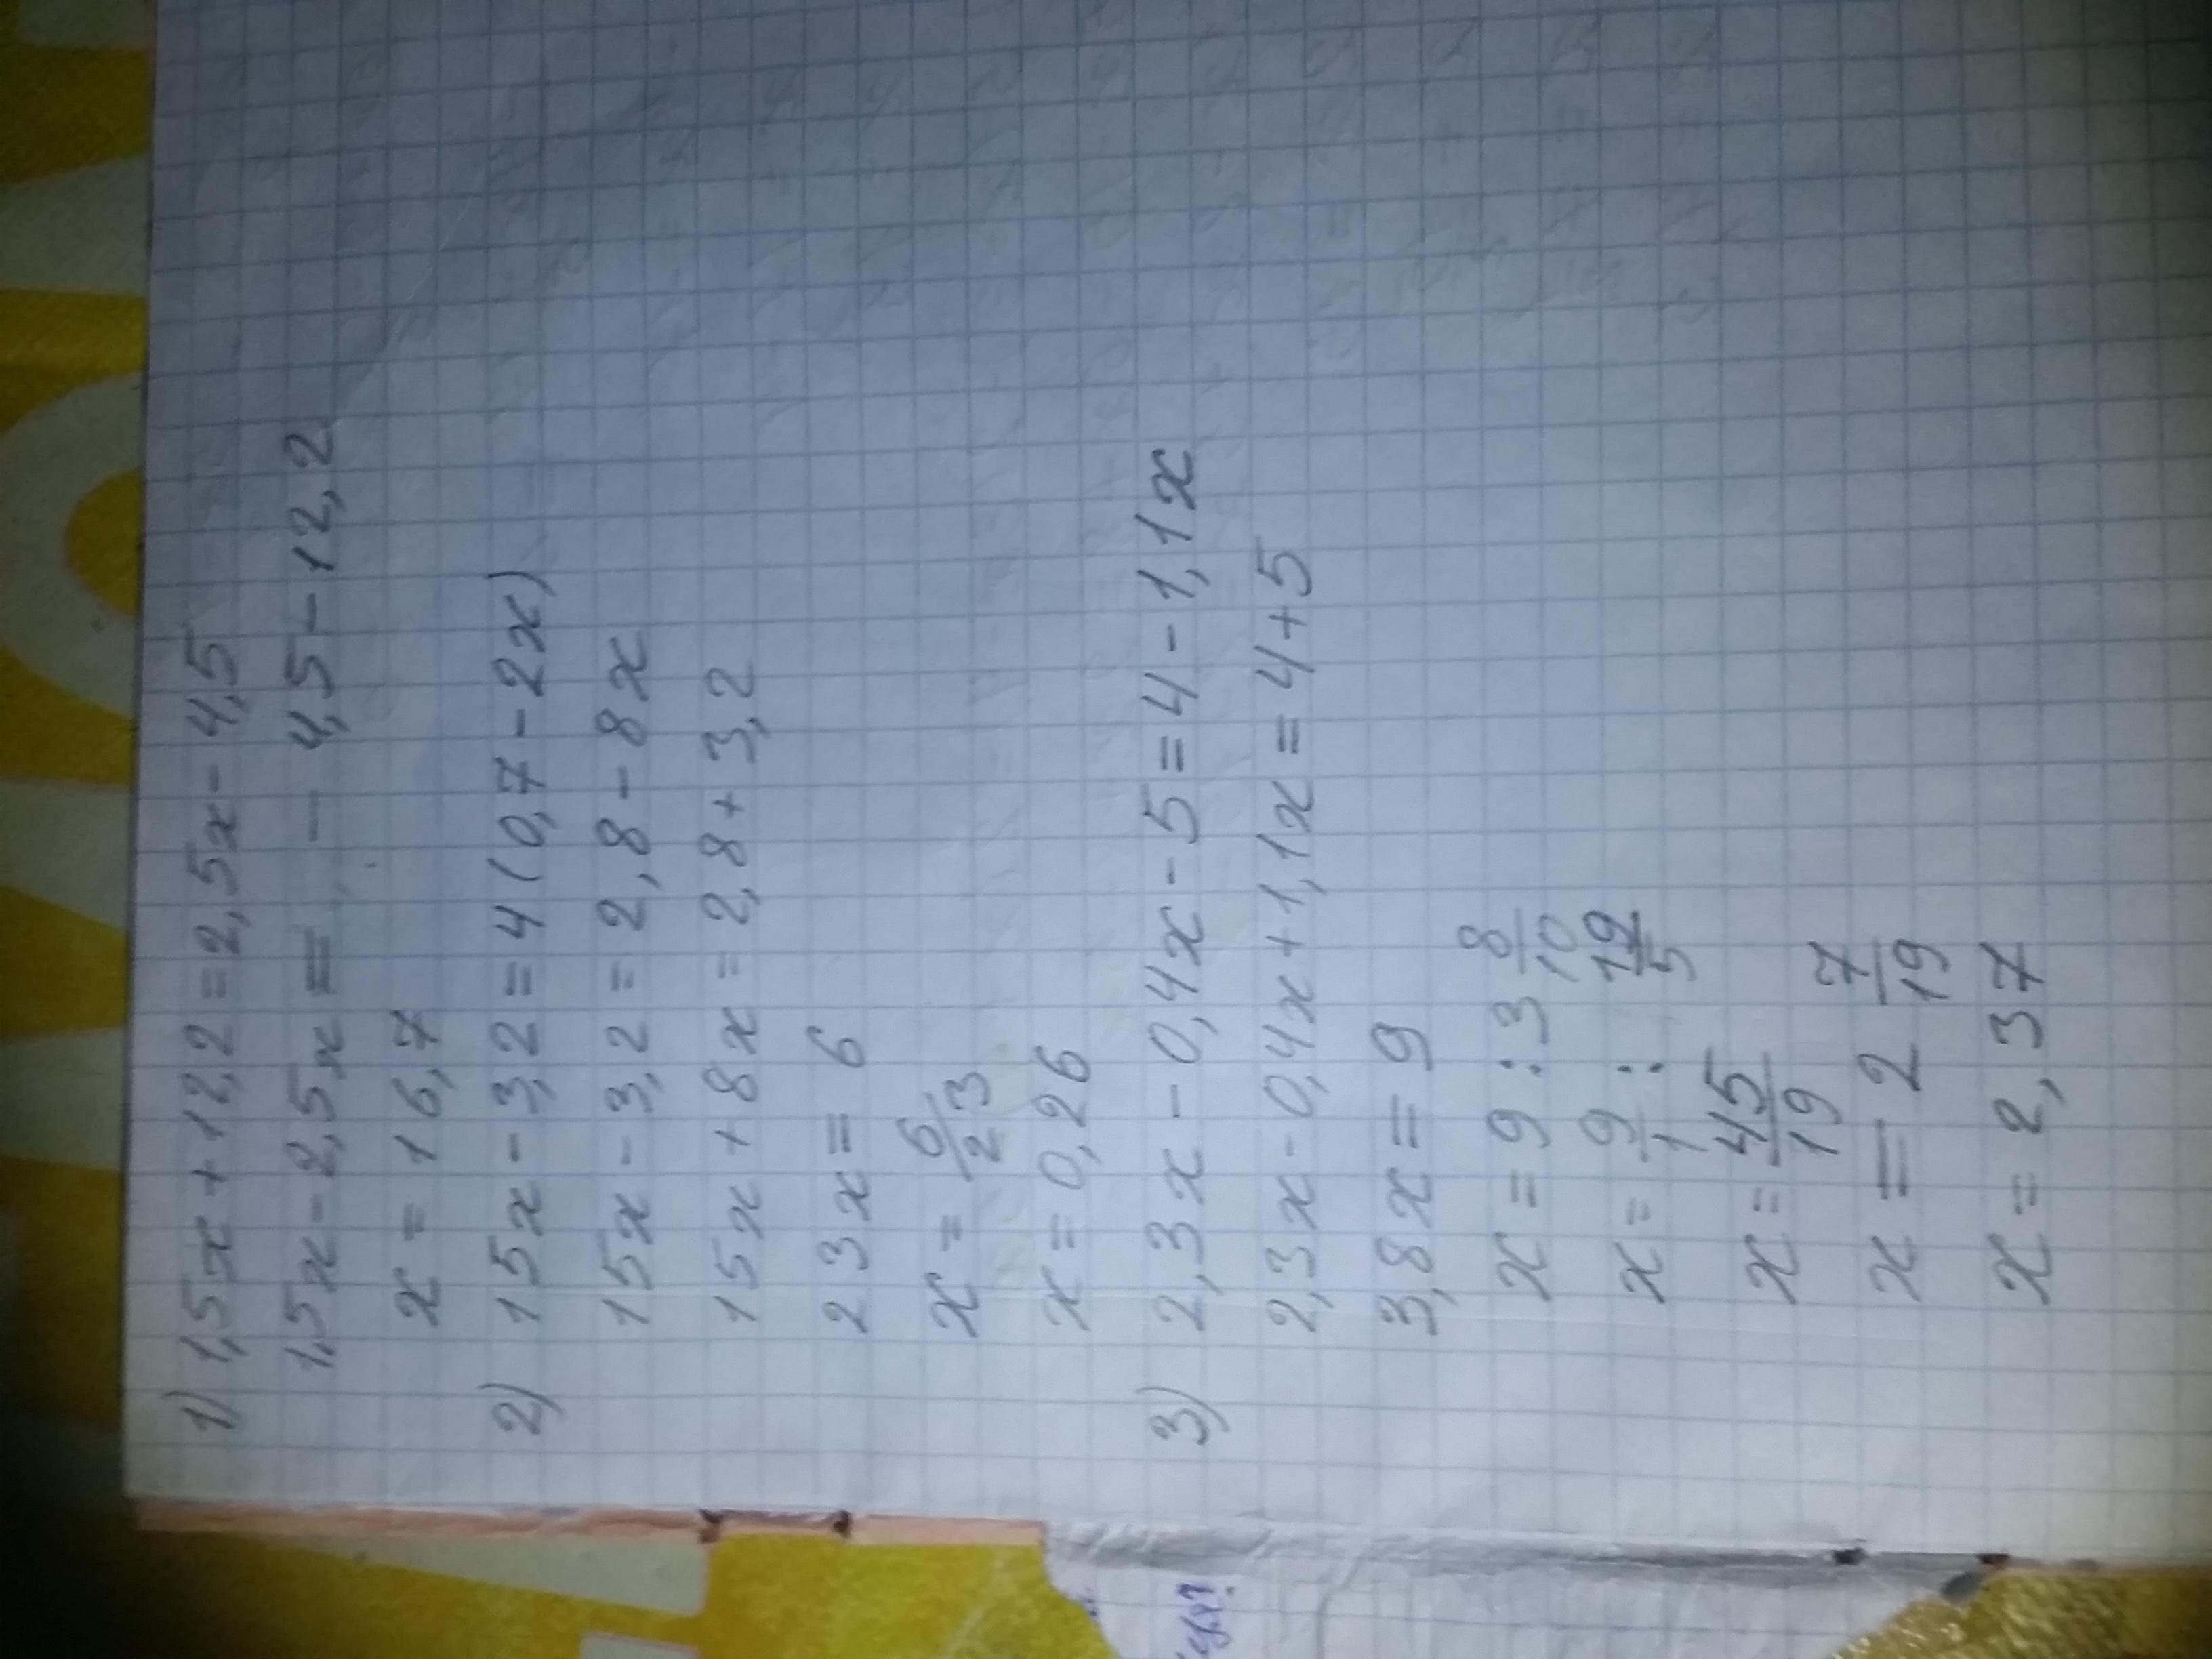 1) 1,5x + 12,2 = 2,5x - 4,5
1,5x - 2,5x = - 4,5 - 12,2
x = 16,7
2) 15x - 3,2 = 4(0,7 - 2x)
15x - 3,2 = 2,8 - 8x
15x + 8x = 2,8 + 3,2
23x = 6
x = 6/23
x = 0,26
3) 2,3x - 0,4x - 5 = 4 - 1,1x
2,3x - 0,4x + 1,1x = 4 + 5
3,8x = 9
x = 9 : 3 8/10
x = 9/1 : 19/5
x = 45/19
x = 2 7/19
x = 2,37